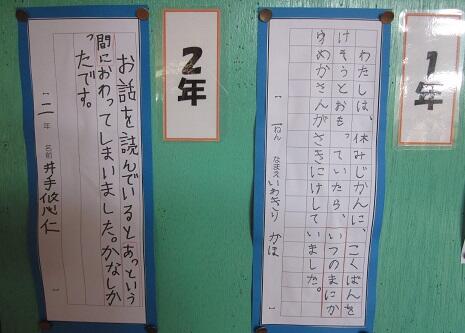 1年
わたしは、休みじかんに、こくばんを
けそうとおもっていたら、いつのまにか
ゆめかさんがさきにけしていました。
一ねん なまえ いわきり かほ
2年
お話を読んでいるとあっという
間におわってしまいました。かなしか
ったです。
二年 名前 井手悠仁